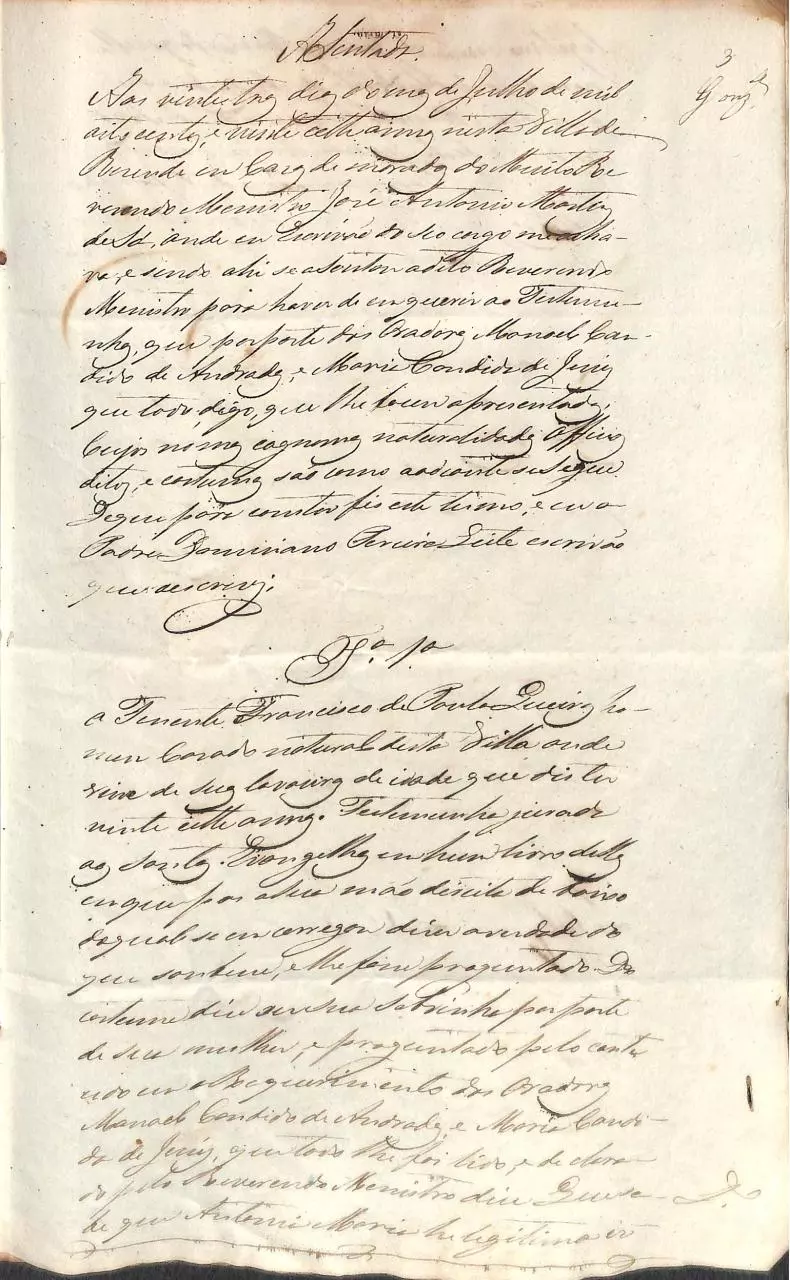 Assentada.
3
Aos vinte tres dias do mes de Julho de mil
oito centos, e vinte e sette annos nesta Villa de
Rezende em Cazas de morada do Muito Re
verendo Menistro José Antonio Martins
de Sá, onde eu Escrivão do seo cargo me acha-
va, e sendo ahi se asentou o dito Reverendo
Menistro para haver de enquerir as Testemu-
nhas, que por parte dos Oradores Manoel Can-
dido de Andrade, e Maria Candida de Jesus
que todo, digo, que lhe foram aprezentadas,
Cujos nomes cognomes naturalidades Officio
ditos, e costumes são como aodiante se segue
De que para constar fis este termo, e eu o
Padre Domiciano Pereira Leite escrivão
que o escrevi.
Ta. 1a
O Tenente Francisco de Paula Queiros ho-
mem Cazado natural desta Villa onde
vive de suas lavouras de idade que dis ter
vinte e sette annos. Testemunha jurada
aos Santos Evangelhos em hum livro delles
em que pos a sua mão direita de baixo
do qual se encarregou dizer a verdade do
que soubese, e lhe fose preguntado. Do
costume dice ser sua sobrinha por parte
de sua mulher, e preguntado pelo conte
udo em o Requerimento dos Oradores
Manoel Candido de Andrade, e Maria Candi-
da de Jesus, que todo lhe foi lido, e declara
do pelo Reverendo Menistro dice Que sa-
be que Antonia Maria he legitima ir